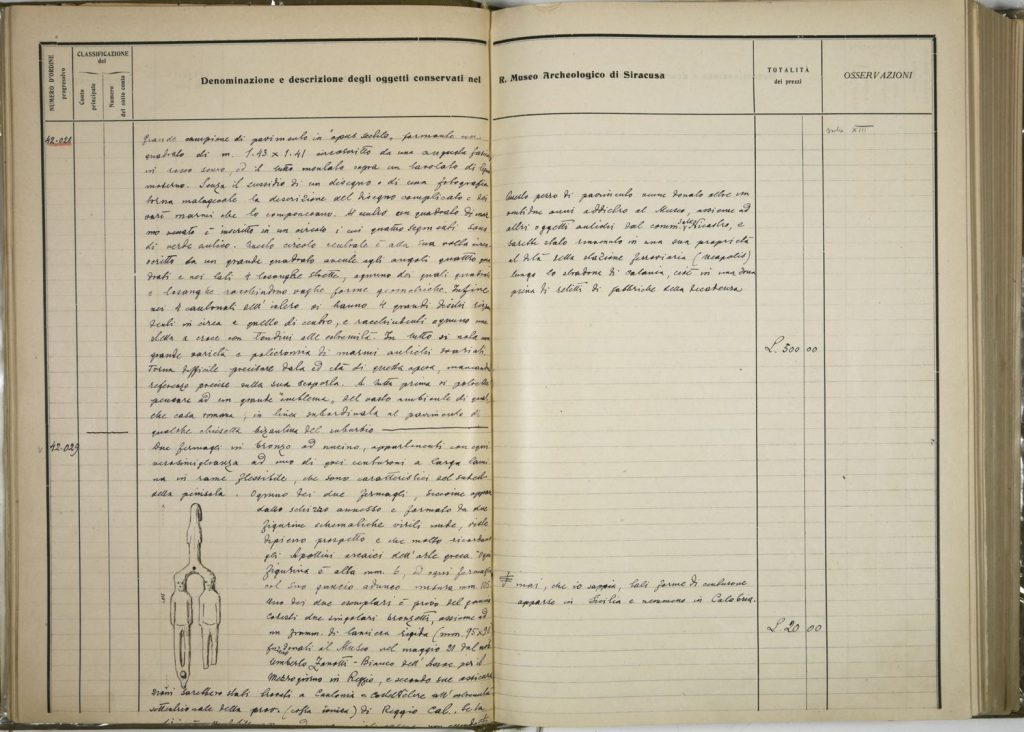 NUMERO D'ORDINE
progressivo
CLASSIFICAZIONE
del
Conto
principale
Numero
del sotto conto
Denominazione e descrizione degli oggetti conservati nel R. Museo Archeologico di Siracusa
TOTALITÀ
dei prezzi
OSSERVAZIONI
42.028
Grande campione di pavimento in "opus sectile" formante un
quadrato di m. 1.43 x 1.41 circoscritto da una angusta fascia
in rosso scuro, ed il tutto montato sopra un tavolato di
moderno. Senza il sussidio di un disegno o di una fotografia
torna malagevole la descrizione del disegno complicato e dei
varî marmi che lo compongono. Al centro un quadrato di mar
mo venato è inscritto in un circolo i cui quattro segmenti sono
di verde antico. Quello circolo centrale è alla sua volta circo
scritto da un grande quadrato avente agli angoli quattro qua
drati e nei lati 4 losanghe strette, ognuno dei quali quadrati
e losanghe racchiudono vaghe forme geometriche. Infine
nei 4 cantonali all' esterno si hanno 4 grandi dischi
in circa a quello di centro, e racchiudenti ognuno una
stella a croce con tondini alle estremità. In tutto si nota una
grande varietà e policromia di marmi antichi svariati.
Torna difficile precisare data ed età di questa opera, mancando
referenze precise sulla sua scoperta. A tutta prima si potrebbe
pensare ad un grande "emblema" del vasto ambiente di qual
che casa romana, in linea subordinata al pavimento di
qualche chiesetta bizantina del suburbio
Questo pezzo di pavimento venne donato oltre un
ventidue anni addietro al Museo, assieme ad
altri oggetti antichi dal comm. Ricastro, e
sarebbe stato rinvenuto in una sua proprietà
al di là della stazione ferroviaria (Neapolis)
lungo lo stradone di Catania, cioè in una zona
piena di relitti di fabbriche della decadenza
L. 500 00
XIII
42.029
Due fermagli in bronzo ad uncino, appartenenti con ogni
verosimiglianza ad uno di quei cinturoni a larga lami
na in rame flessibile, che sono caratteristici del
della penisola. Ognuno dei due fermagli, siccome appare
dallo schizzo annesso è formato da due
figurine schematiche virili nude, viste
di pieno prospetto e che molto ricordano
gli Apollini arcaici dell'arte greca. Ogni
figurina è alta mm. 6, ed ogni fermaglio
col suo gancio adunco misura mm. 105
Uno dei due esemplari è privo del gancio
Cotesti due singolari bronzetti, assieme ad
un framm. di lamiera rigida (mm. 95 x
furono donati al Museo nel maggio 21 dal
Umberto Zanotti-Bianco dell' Assoc. per il
Mezzogiorno in Reggio, e secondo sue assicura
zioni sarebbero stati trovati a Caulonia - Castelvetere all'estremità
settentrionale della prov. (costa ionica) di Reggio Cal.
mai, che io sappia, tali forme di cinturone
apparse in Sicilia e nemmeno in Calabria.
L. 20 00